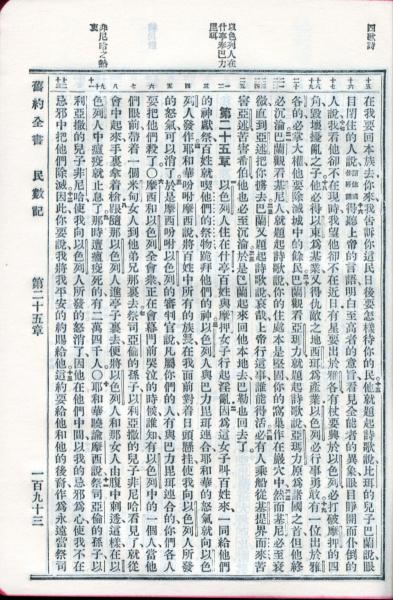 四歌詩
以色列人在
什亭奉巴力
毘珥
非尼哈之熱
衷
在我要回本族去你來我告訴你這民日後要怎樣待你的民他就題起詩歌說比珥的兒子巴蘭說眼
目閉住的人說得聽上帝的言語明白至高者的意旨看見全能者的異象眼目睜開而仆倒的
人說我看他却不在現時我望他却不在近日有星要出於雅各有杖要興於以色列必打破摩押的四
角毀壞擾亂之子他必得以東為基業又得仇敵之地西珥為產業以色列必行事勇敢有一位出於雅
各的必掌大權他要除滅城中的餘民巴蘭觀看亞瑪力就題起詩歌說亞瑪力原為諸國之首但他終
必沉淪巴蘭觀看基尼人就題起詩歌說你的住處本是堅固你的窩巢作在巖穴中然而基尼必至衰
微直到亞述把你擄去巴蘭又題起詩歌說哀哉上帝行這事誰能得活必有人乘船從基提界而來苦
害亞述苦害希伯他也必至沉淪於是巴蘭起來回他本地去巴勒也回去了
第二十五章 以色列人住在什亭百姓與摩押女子行起淫亂因為這女子叫百姓來一同給他們
的神獻祭百姓就喫他們的祭物跪拜他們的神以色列人與巴力毘珥連合耶和華的怒氣就向以色
列人發作耶和華吩咐摩西說將百姓中所有的族長在我面前對着日頭懸挂使我向以色列人所發
的怒氣可以消了於是摩西吩咐以色列的審判官說凡屬你們的人有與巴力毘珥連合的你們各人
要把他們殺了○摩西和以色列全會衆正在會幕門前哭泣的時候誰知有以色列中的一個人當他
們眼前帶着一個米甸女人到他弟兄那裏去祭司亞倫的孫子以利亞撒的兒子非尼哈看見了就從
會中起來手裏拿着槍跟隨那以色列人進亭子裏去便將以色列人和那女人由腹中刺透這樣在以
色列人中瘟疫就止息了那時遭瘟疫死的有二萬四千人○耶和華曉諭摩西說祭司亞倫的孫子以
利亞撒的兒子非尼哈使我向以色列人所發的怒消了因他在他們中間以我的忌邪為心使我不在
忌邪中把他們除滅因此你要說我將我平安的約賜給他這約要給他和他的後裔作為永遠當祭司
舊約全書 民數記 第二十五章 一百九十三